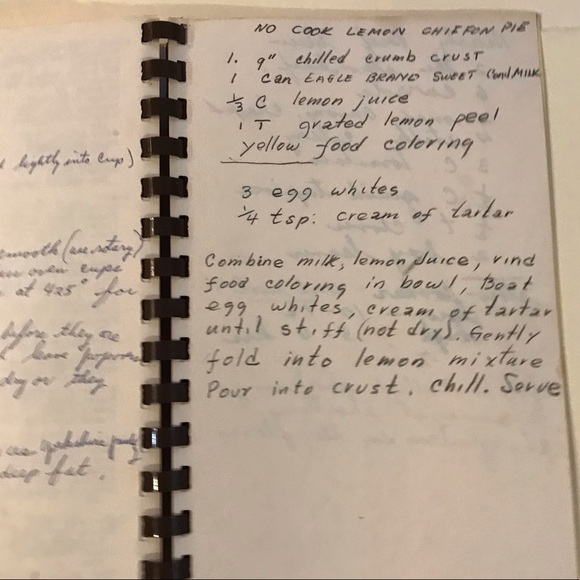 NO COOK LEMON CHIFFON PIE
1. 9" chilled crumb crust
1 can EAGLE BRAND SWEET Cond MILK
1/3 C lemon juice
1 T grated lemon peel
yellow food coloring
3 egg whites
1/4 tsp: cream of tartar
Combine milk, lemon juice, rind
food coloring in bowl, Beat
egg whites, cream of tartar
until stiff (not dry). Gently
fold into lemon mixture
Pour into crust. Chill. Serve
lightly into cup)
smooth (use rotary)
oven cups
at 425° for
before they are
leave
dry or they
deep fat.